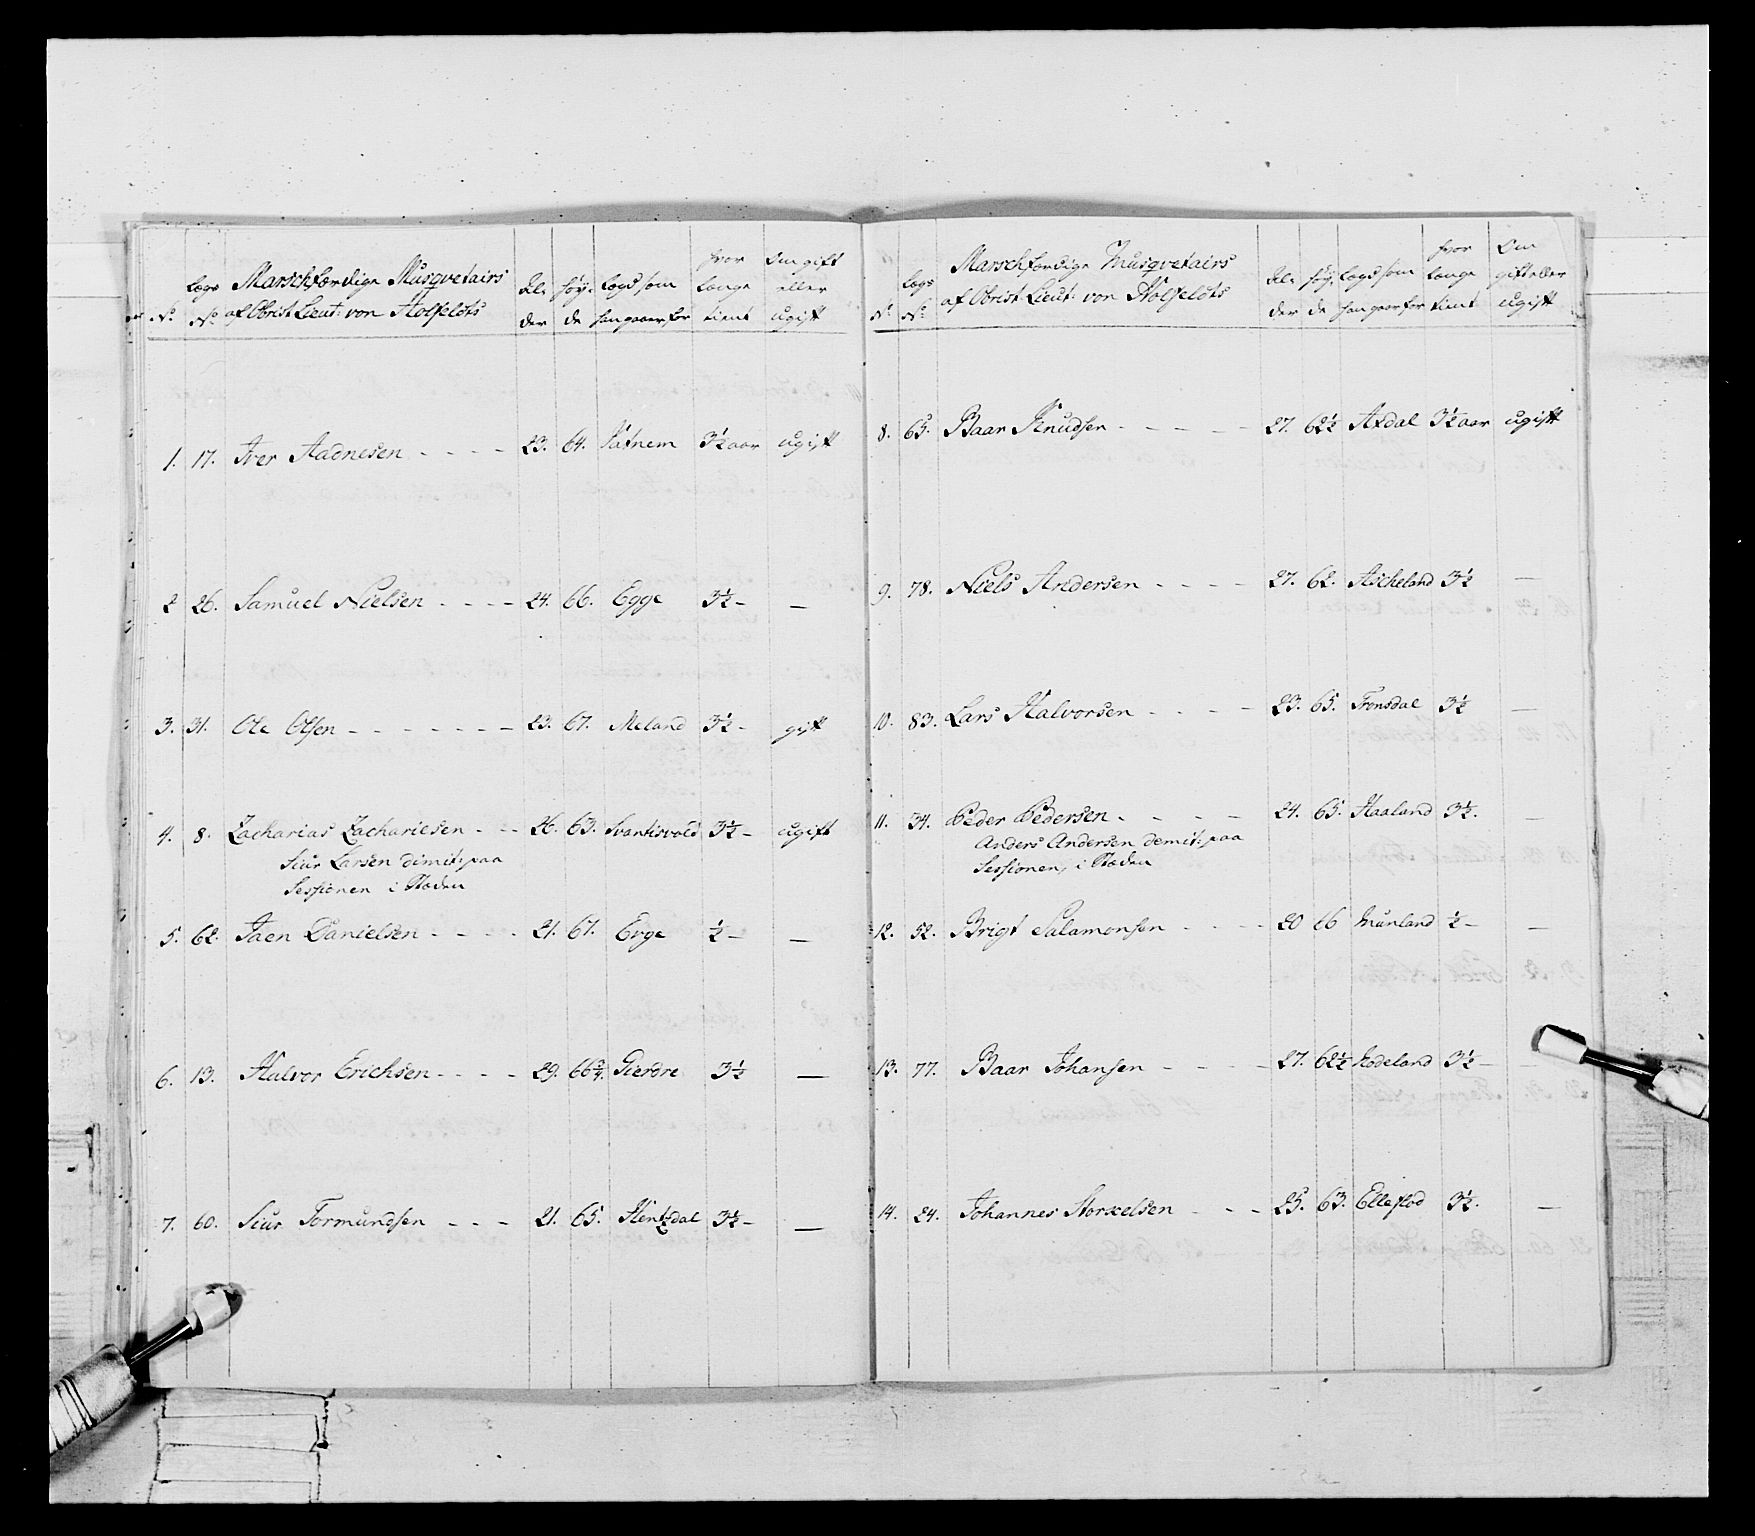 No. Lægs No. Marschfærdige Musqvetairs af Obrist Lieut: von Holfeldts Alder Høyde Lægd som han gaaer for hvor længe tient Om gift eller ugift
1. 17. Iver Aadnesen - - - - 23. 64. Satnem 3½ aar ugift
2 26. Samuel Nielsen - - - - 24. 66. Egge 3½ - -
3. 31. Ole Olsen - - - - - - - 23. 67. Meland 3½ - gift
4. 8. Zacharias Zachariesen - - - 26. 63. Svartisvold 3½ - ugift
Siur Larsen dimit: paa
Sessionen i Stæden
5. 62. Taen Danielsen - - - - 21. 67. Evge ½ - -
6. 13. Halvor Erichsen - - - - 29. 66¾. Gierdre 3½ -
7. 60. Siur Tormundsen - - - 21. 65. Hentzdal 3½ - -
No. Lægs No. Marschfærdige Musqvetairs af Obrist Lieut: von Holfeldts Alder Høyde Lægd som han gaaer for hvor længe tient Om gift eller ugift
8. 65. Baar Knudsen - - - - - 27. 62½ Axdal 3½ aar ugift
9. 78. Niels Andersen - - - - 27. 62. Ascheland 3½ -
10. 83. Lars Halvorsen - - - - 23. 65. Tronsdal 3½ -
11. 34. Peder Pedersen - - - - 24. 65. Haaland 3½. -
Anders Andersen demit: paa
Sessionen, i Stæden
12. 52. Brigt Salamonsen - - - - 20 66 Munland ½ - -
13. 77. Baar Johansen - - - - 27. 62½ Rodeland 3½ - -
14. 24. Johannes Storxelsen - - - 25. 63. Elleflod 3½. -